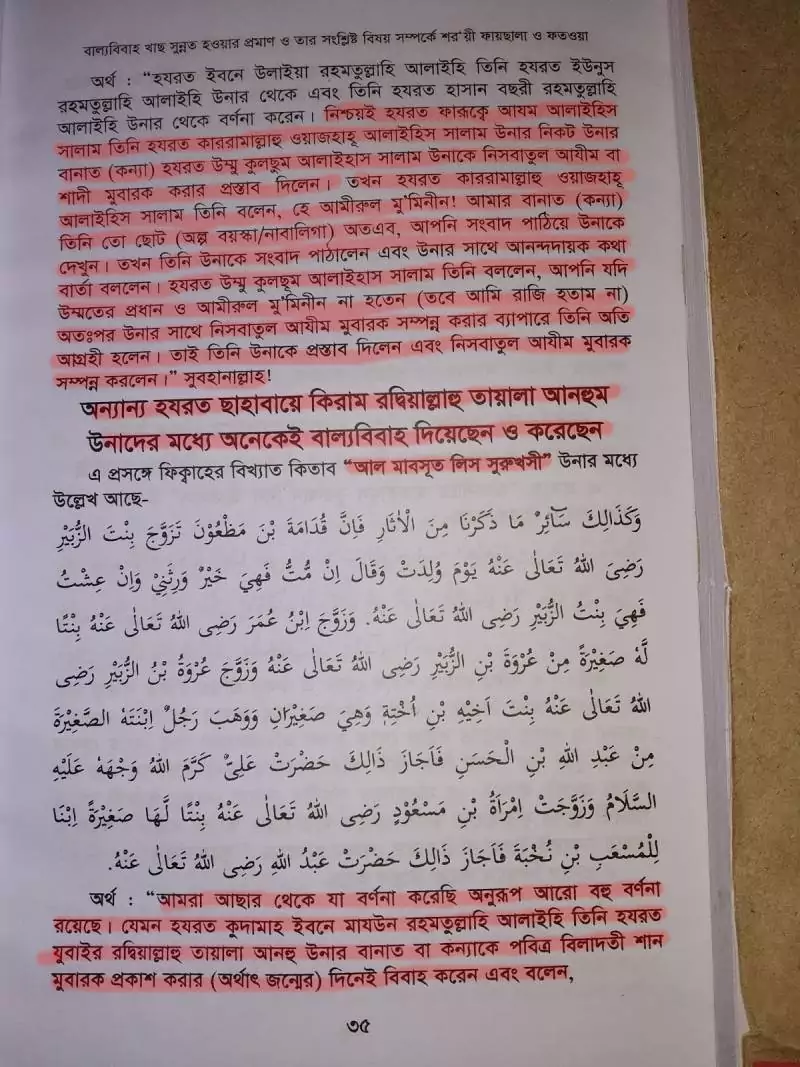 বাল্যবিবাহ খাছ সুন্নত হওয়ার প্রমাণ ও তার সংশ্লিষ্ট বিষয় সম্পর্কে শর'য়ী ফায়ছালা ও ফতওয়া
অর্থ : “হযরত ইবনে উলাইয়া রহমতুল্লাহি আলাইহি তিনি হযরত ইউনুস
রহমতুল্লাহি আলাইহি উনার থেকে এবং তিনি হযরত হাসান বছরী রহমতুল্লাহি
আলাইহি উনার থেকে বর্ণনা করেন। নিশ্চয়ই হযরত ফারূক্বে আযম আলাইহিস
সালাম তিনি হযরত কাররামাল্লাহু ওয়াজহাহূ আলাইহিস সালাম উনার নিকট উনার
বানাত (কন্যা) হযরত উম্মু কুলছূম আলাইহাস সালাম উনাকে নিসবাতুল আযীম বা
শাদী মুবারক করার প্রস্তাব দিলেন। তখন হযরত কাররামাল্লাহু ওয়াজহাহূ
আলাইহিস সালাম তিনি বলেন, হে আমীরুল মু'মিনীন! আমার বানাত (কন্যা)
তিনি তো ছোট (অল্প বয়স্কা/নাবালিগা) অতএব, আপনি সংবাদ পাঠিয়ে উনাকে
দেখুন। তখন তিনি উনাকে সংবাদ পাঠালেন এবং উনার সাথে আনন্দদায়ক কথা
বার্তা বললেন। হযরত উম্মু কুলছূম আলাইহাস সালাম তিনি বললেন, আপনি যদি
উম্মতের প্রধান ও আমীরুল মু'মিনীন না হতেন (তবে আমি রাজি হতাম না)
অতঃপর উনার সাথে নিসবাতুল আযীম মুবারক সম্পন্ন করার ব্যাপারে তিনি অতি
আগ্রহী হলেন। তাই তিনি উনাকে প্রস্তাব দিলেন এবং নিসবাতুল আযীম মুবারক
সম্পন্ন করলেন।” সুবহানাল্লাহ!
অন্যান্য হযরত ছাহাবায়ে কিরাম রদ্বিয়াল্লাহু তায়ালা আনহুম
উনাদের মধ্যে অনেকেই বাল্যবিবাহ দিয়েছেন ও করেছেন
এ প্রসঙ্গে ফিক্বাহের বিখ্যাত কিতাব “আল মাবসূত লিস সুরুখসী” উনার মধ্যে
উল্লেখ আছে-
وَكَذَالِكَ سَآئِرُ مَا ذَكَرْنَا مِنَ الْاٰثَارِ فَاِنَّ قُدَامَةَ بْنَ مَظْعُوْنَ تَزَوَّجَ بِنْتَ الزُّبَيْرِ
رَضِىَ اللهُ تَعَالٰى عَنْهُ يَوْمَ وُلِدَتْ وَقَالَ اِنْ مُتُّ فَهِيَ خَيْرُ وَرِثَتِيْ وَاِنْ عِشْتُ
فَهِيَ بِنْتُ الزُّبَيْرِ رَضِى اللهُ تَعَالٰى عَنْهُ. وَزَوَّجَ اِبْنُ عُمَرَ رَضِى اللهُ تَعَالٰى عَنْهُ بِنْتًا
لَّهٗ صَغِيْرَةً مِنْ عُرْوَةَ بْنِ الزُّبَيْرِ رَضِى اللهُ تَعَالٰى عَنْهُ وَزَوَّجَ عُرْوَةُ بْنُ الزُّبَيْرِ رَضِى
اللهُ تَعَالٰى عَنْهُ بِنْتَ اَخِيْهِ بْنِ اُخْتِهٖ وَهِيَ صَغِيْرَانِ وَوَهَبَ رَجُلٌ اِبْنَتَهُ الصَّغِيْرَةَ
مِنْ عَبْدِ اللهِ بْنِ الْحَسَنِ فَاَجَازَ ذَالِكَ حَضْرَتْ عَلِىٌّ كَرَّمَ اللهُ وَجْهَهٗ عَلَيْهِ
السَّلَامُ وَزَوَّجَتْ اِمْرَأَةُ بْنِ مَسْعُوْدٍ رَضِى اللهُ تَعَالٰى عَنْهُ بِنْتًا لَّهَا صَغِيْرَةً اِبْنًا
لِلْمُسْعَبِ بْنِ نُخْبَةَ فَاَجَازَ ذَالِكَ حَضْرَتْ عَبْدُ اللهِ رَضِى اللهُ تَعَالٰى عَنْهُ.
অর্থ : “আমরা আছার থেকে যা বর্ণনা করেছি অনুরূপ আরো বহু বর্ণনা
রয়েছে। যেমন হযরত কুদামাহ ইবনে মাযউন রহমতুল্লাহি আলাইহি তিনি হযরত
যুবাইর রদ্বিয়াল্লাহু তায়ালা আনহু উনার বানাত বা কন্যাকে পবিত্র বিলাদতী শান
মুবারক প্রকাশ করার (অর্থাৎ জন্মের) দিনেই বিবাহ করেন এবং বলেন,
৩৫